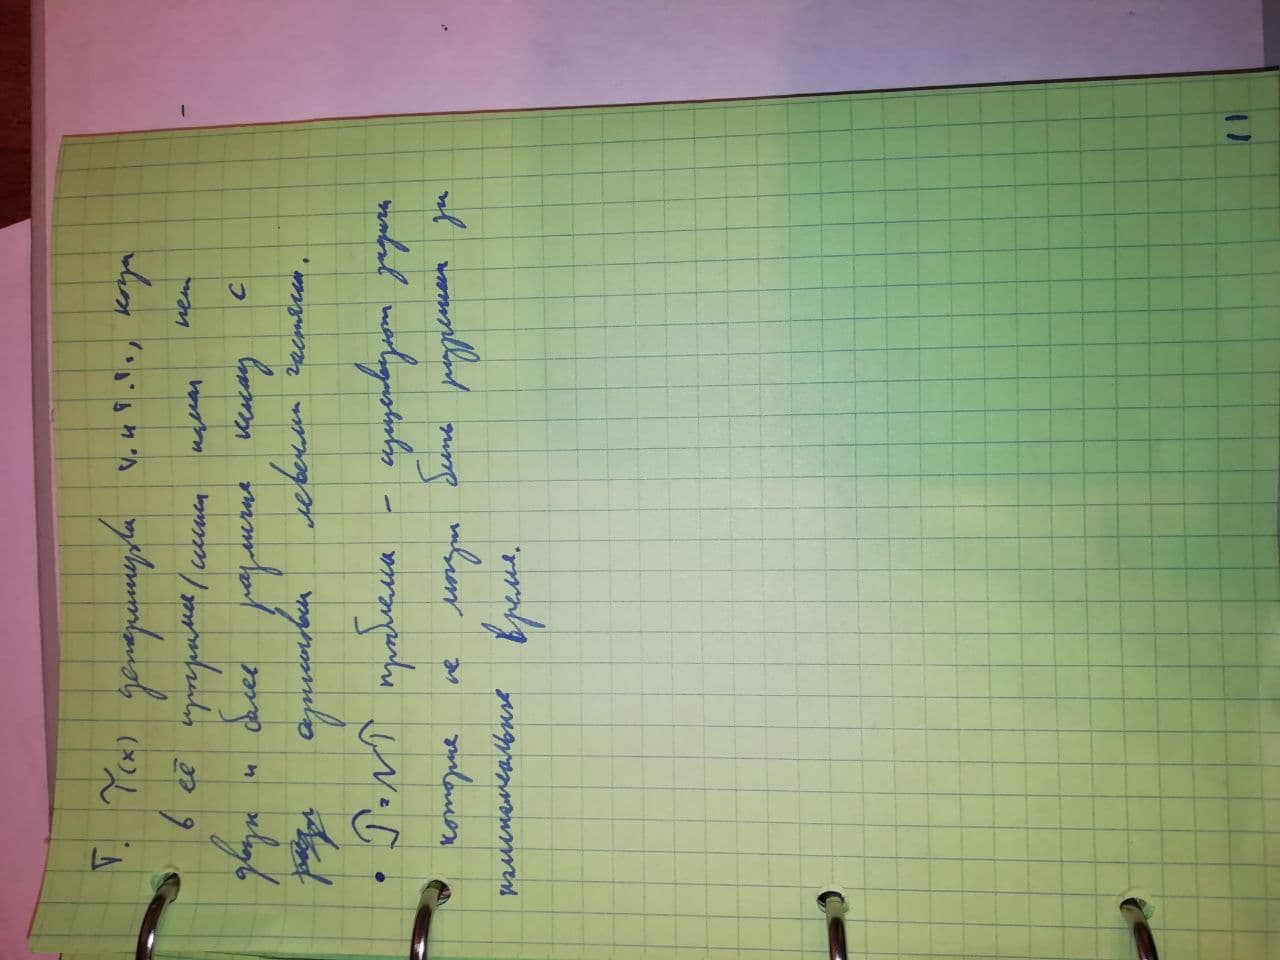 T. T(x) детерминирова т. и т. т., когда
в её програме/списке команд нет
двух и более различных команд с
одинаковыми левыми частями.
• P=NP проблема – существуют задачи
которые не могут быть разрешены за
полиномиальное время.
11